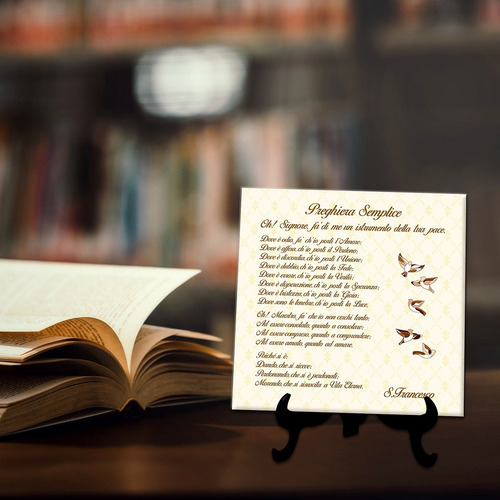 Preghiera Semplice
Oh! Signore, fa' di me un istrumento della tua pace.
Dove è odio, fa' ch'io porti l'Amore;
Dove è offesa, ch'io porti il Perdono;
Dove è discordia, ch'io porti l'Unione;
Dove è dubbio, ch'io porti la Fede;
Dove è errore, ch'io porti la Verità;
Dove è disperazione, ch'io porti la Speranza;
Dove è tristezza, ch'io porti la Gioia;
Dove sono le tenebre, ch'io porti la Luce.
Oh! Maestro, fa' che io non cerchi tanto:
Ad essere consolato, quanto a consolare;
Ad essere compreso, quanto a comprendere;
Ad essere amato, quanto ad amare.
Poiché si è:
Dando, che si riceve;
Perdonando, che si è perdonati;
Morendo, che si risuscita a Vita Eterna.
S. Francesco